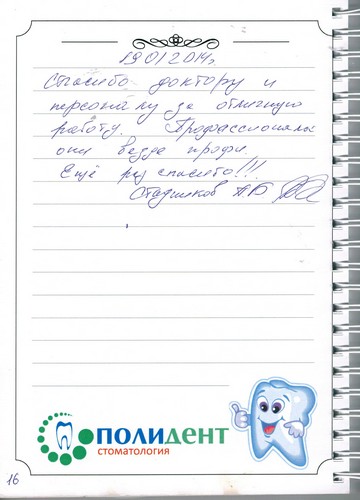 19.01.2014г
Спасибо доктору и
персоналу за отличную
работу. Професcионалы
они везде профи.
Ещё раз спасибо!!!
Стадников АБ
ПОЛИДЕНТ
СТОМАТОЛОГИЯ
16